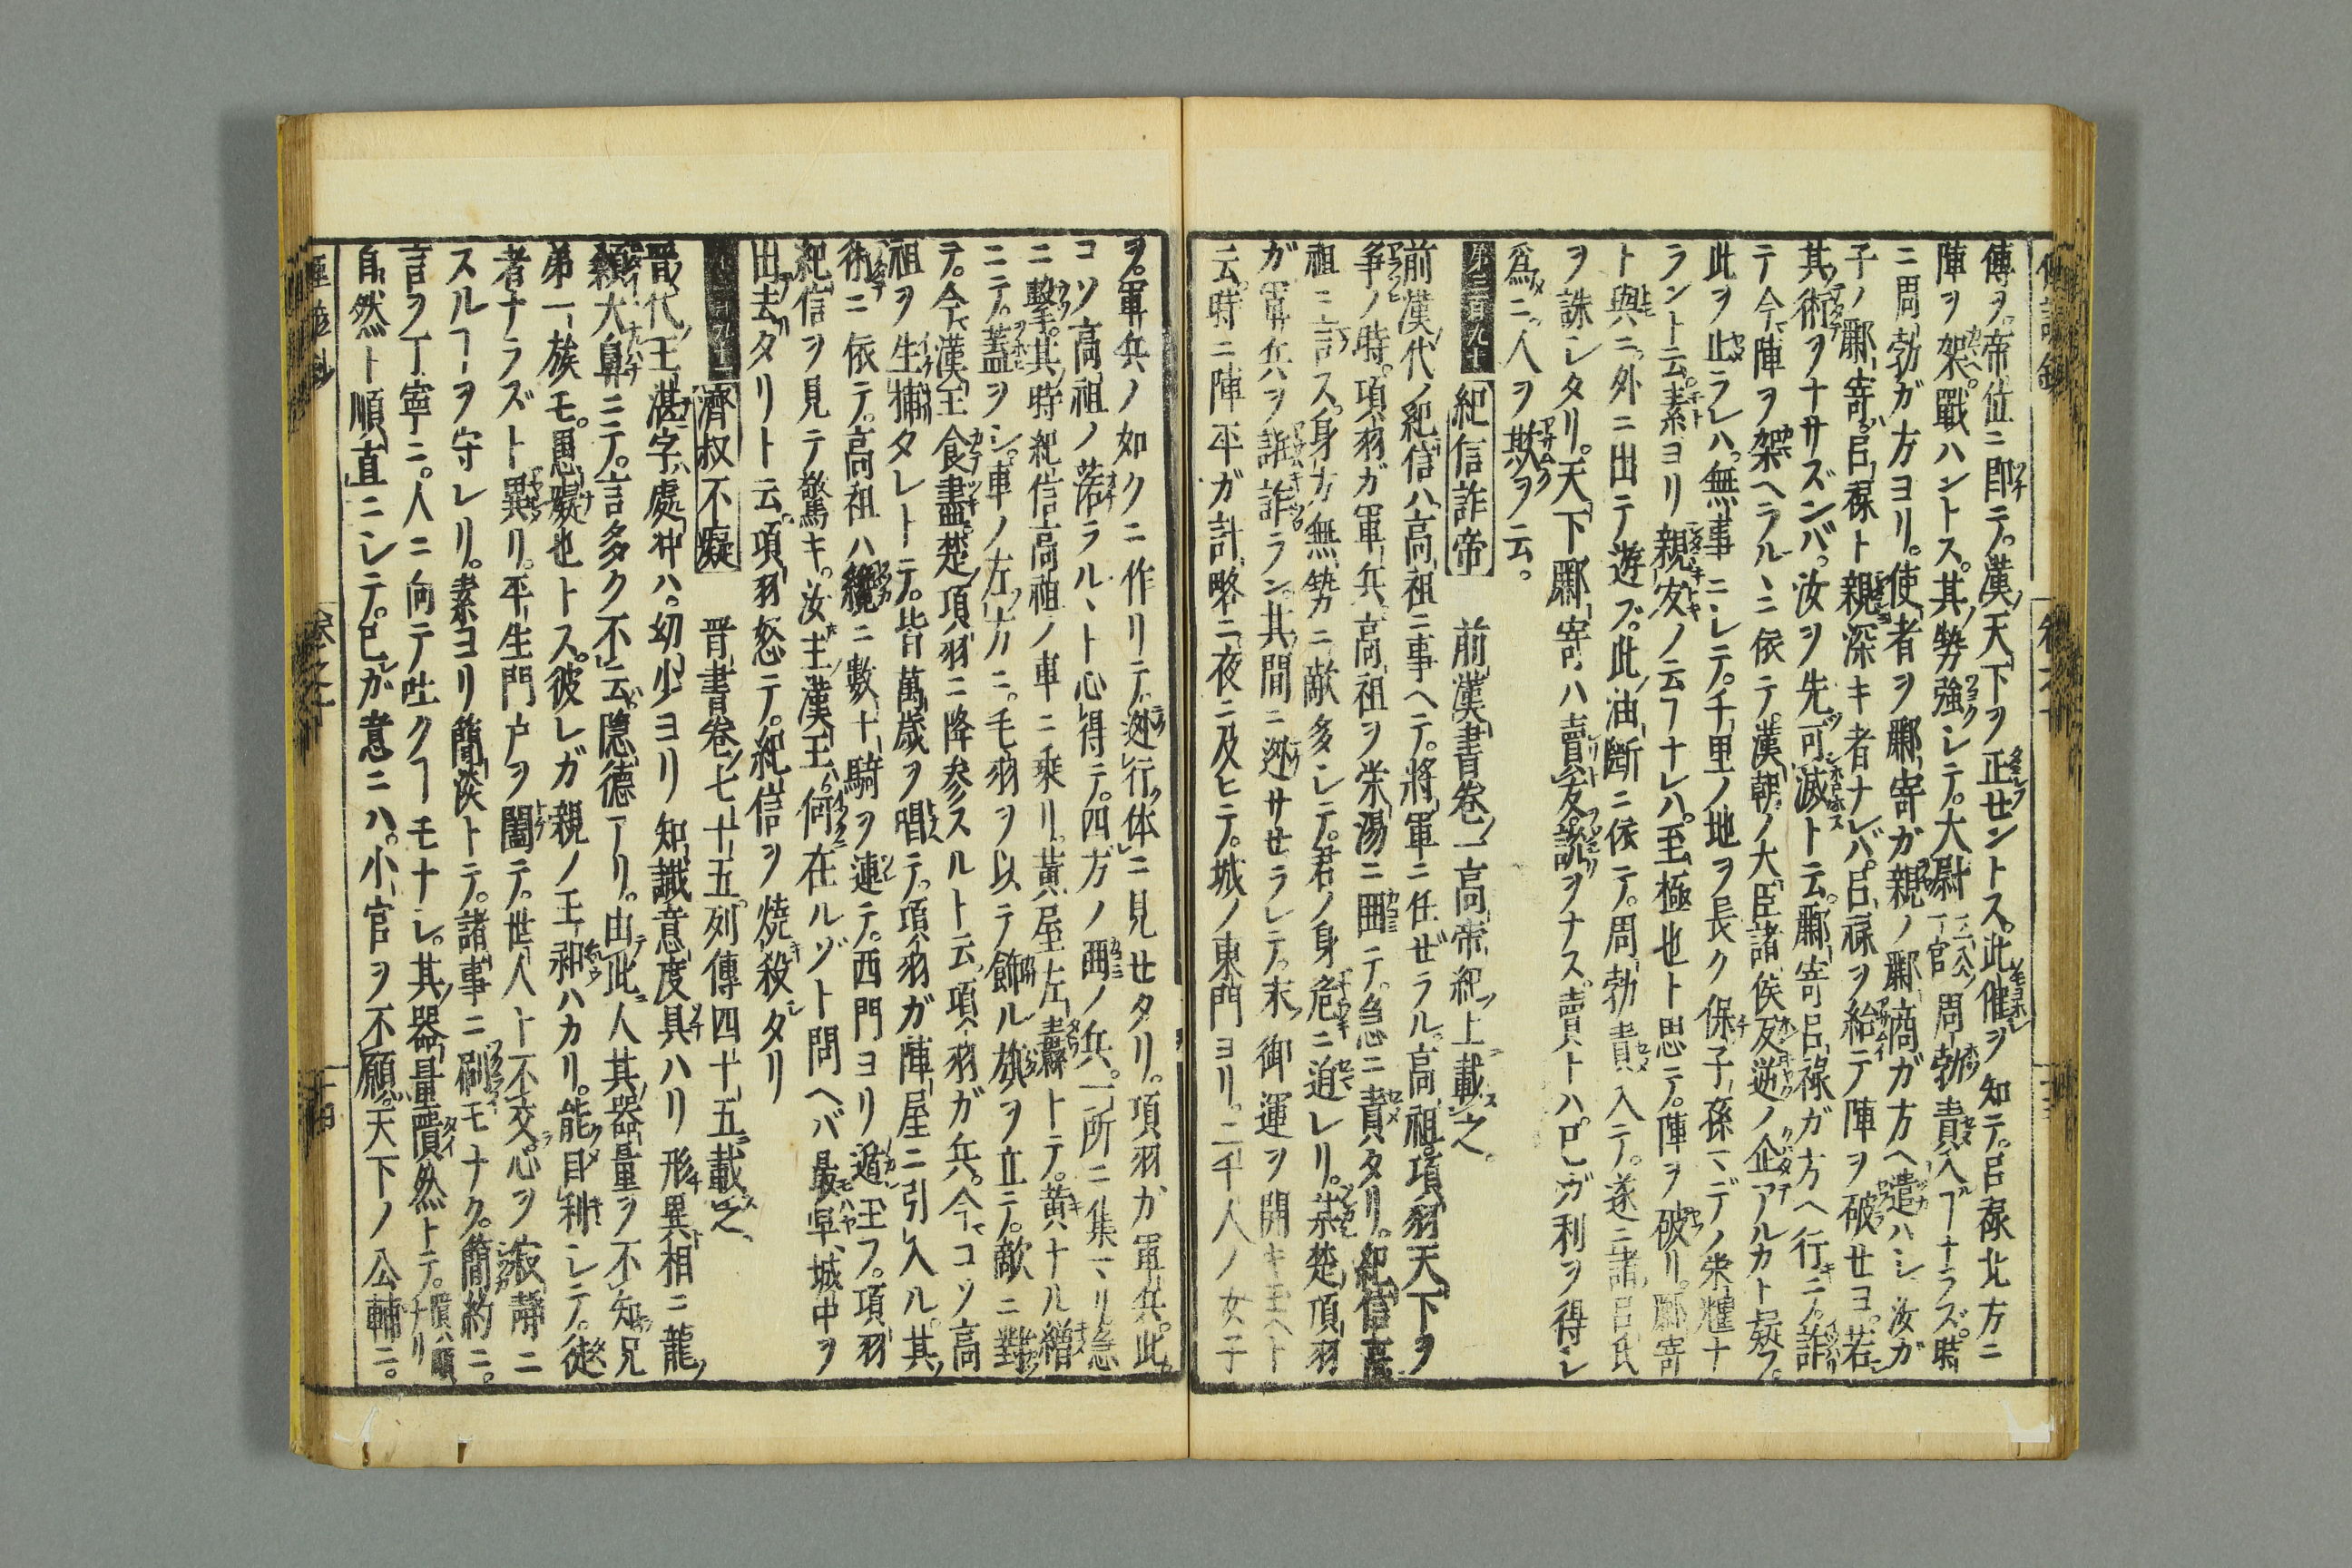 傳ヲ。帝位ニ即テ。漢ノ天下ヲ正サセントス。此催ヲ知テ。呂祿北方ニ
陣ヲ架。戰ハントス。其勢強シテ。大尉三公ノ一官周勃責入ヿナラズ。時
ニ周勃ガ方ヨリ。使者ヲ酈寄ガ親ノ酈商ガ方ヘ遣ハシ汝ガ
子ノ酈寄。呂祿ト親深キ者ナレバ。呂祿ヲ紿テ陣ヲ破セヨ。若
其術ヲナサズンバ。汝ヲ先可滅ト云。酈寄呂祿ガ方ヘ行テ。詐
テ今陣ヲ架ヘラルヽニ依テ。漢朝ノ大臣諸侯反逆ノ企アルカト疑フ。
此ヲ止ラレハ。無事ニシテ。千里ノ地ヲ長ク保子孫マデノ榮耀ナ
ラント云。素ヨリ親友ノ云フナレハ。至極也ト思テ。陣ヲ破リ。酈寄
ト與ニ外ニ出テ遊ブ。此油斷ニ依テ。周勃責入テ。遂ニ諸呂氏
ヲ誅シタリ。天下酈寄ハ賣友說ヲナス。賣トハ。己ガ利ヲ得シ
爲ニ人ヲ欺ヲ云。
第三百九十 紀信詐帝 前漢書卷一高帝紀上載之。
前漢代ノ紀信ハ。高祖ニ事ヘテ。將軍ニ任ゼラル。高祖項羽天下ヲ
爭ノ時。項羽ガ軍兵高祖ヲ栄陽ニ囲テ。急ニ責タリ。紀信高
祖ニ言ス。身方無勢ニ敵多シテ。君ノ身危ニ迫レリ。楚項羽
ガ軍兵ヲ誑詐ラン。其間ニ迯サセラレテ。末御運ヲ開キ玉ヘト
云。時ニ陣平ガ計略ニ夜ニ及ヒテ。城ノ東門ヨリ。二千人ノ女子
ヲ。軍兵ノ如クニ作リテ。迯行体ニ見セタリ。項羽ガ軍兵。此
コソ高祖ノ落ラルヽト心得テ。四方ノ囲ノ兵。一所ニ集マリ急
ニ撃。其時紀信高祖ノ車ニ乘リ。黃屋左纛トテ。黃ナル繒
ニテ。蓋ヲシ。車ノ左ノ方ニ。毛羽ヲ以テ飾ル旗ヲ立テ。敵ニ對
テ。今漢王食盡楚項羽ニ降參スルト云。項羽ガ兵。今コソ高
祖ヲ生捕タレトテ。皆萬歲ヲ唱テ。項羽ガ陣屋ニ引入ル。其
術ニ依テ。高祖ハ纔ニ數十騎ヲ連テ。西門ヨリ遁玉フ。項羽
紀信ヲ見テ驚キ。汝主漢王何在ルゾト問ヘバ最早城中ヲ
出去タリト云。項羽怒テ。紀信ヲ燒殺シタリ
濟叔不癡 晋書卷七十五列傳四十五載之
晋代王湛字處冲ハ。幼少ヨリ知識意度具ハリ形異相ニ龍
顙大鼻ニテ。言多ク不云。隱德アリ。由此人其器量ヲ不知兄
弟一族モ。愚癡也トス。彼レガ親ノ王昶ハカリ。能目利シテ。徒
者ナラズト異リ。平生門戶ヲ闔テ。世人ト不交。心ヲ寂靜ニ
スルヿヲ守レリ。素ヨリ簡淡トテ。諸事ニ刷モナク。簡約ニ。
言ヲ丁寧ニ。人ニ向テ吐クヿモナシ。其器量隤然トテ。隤ハ順ナリ
自然ト順直ニシテ。己ガ意ニハ。小官ヲ不願。天下ノ公輔ニ。